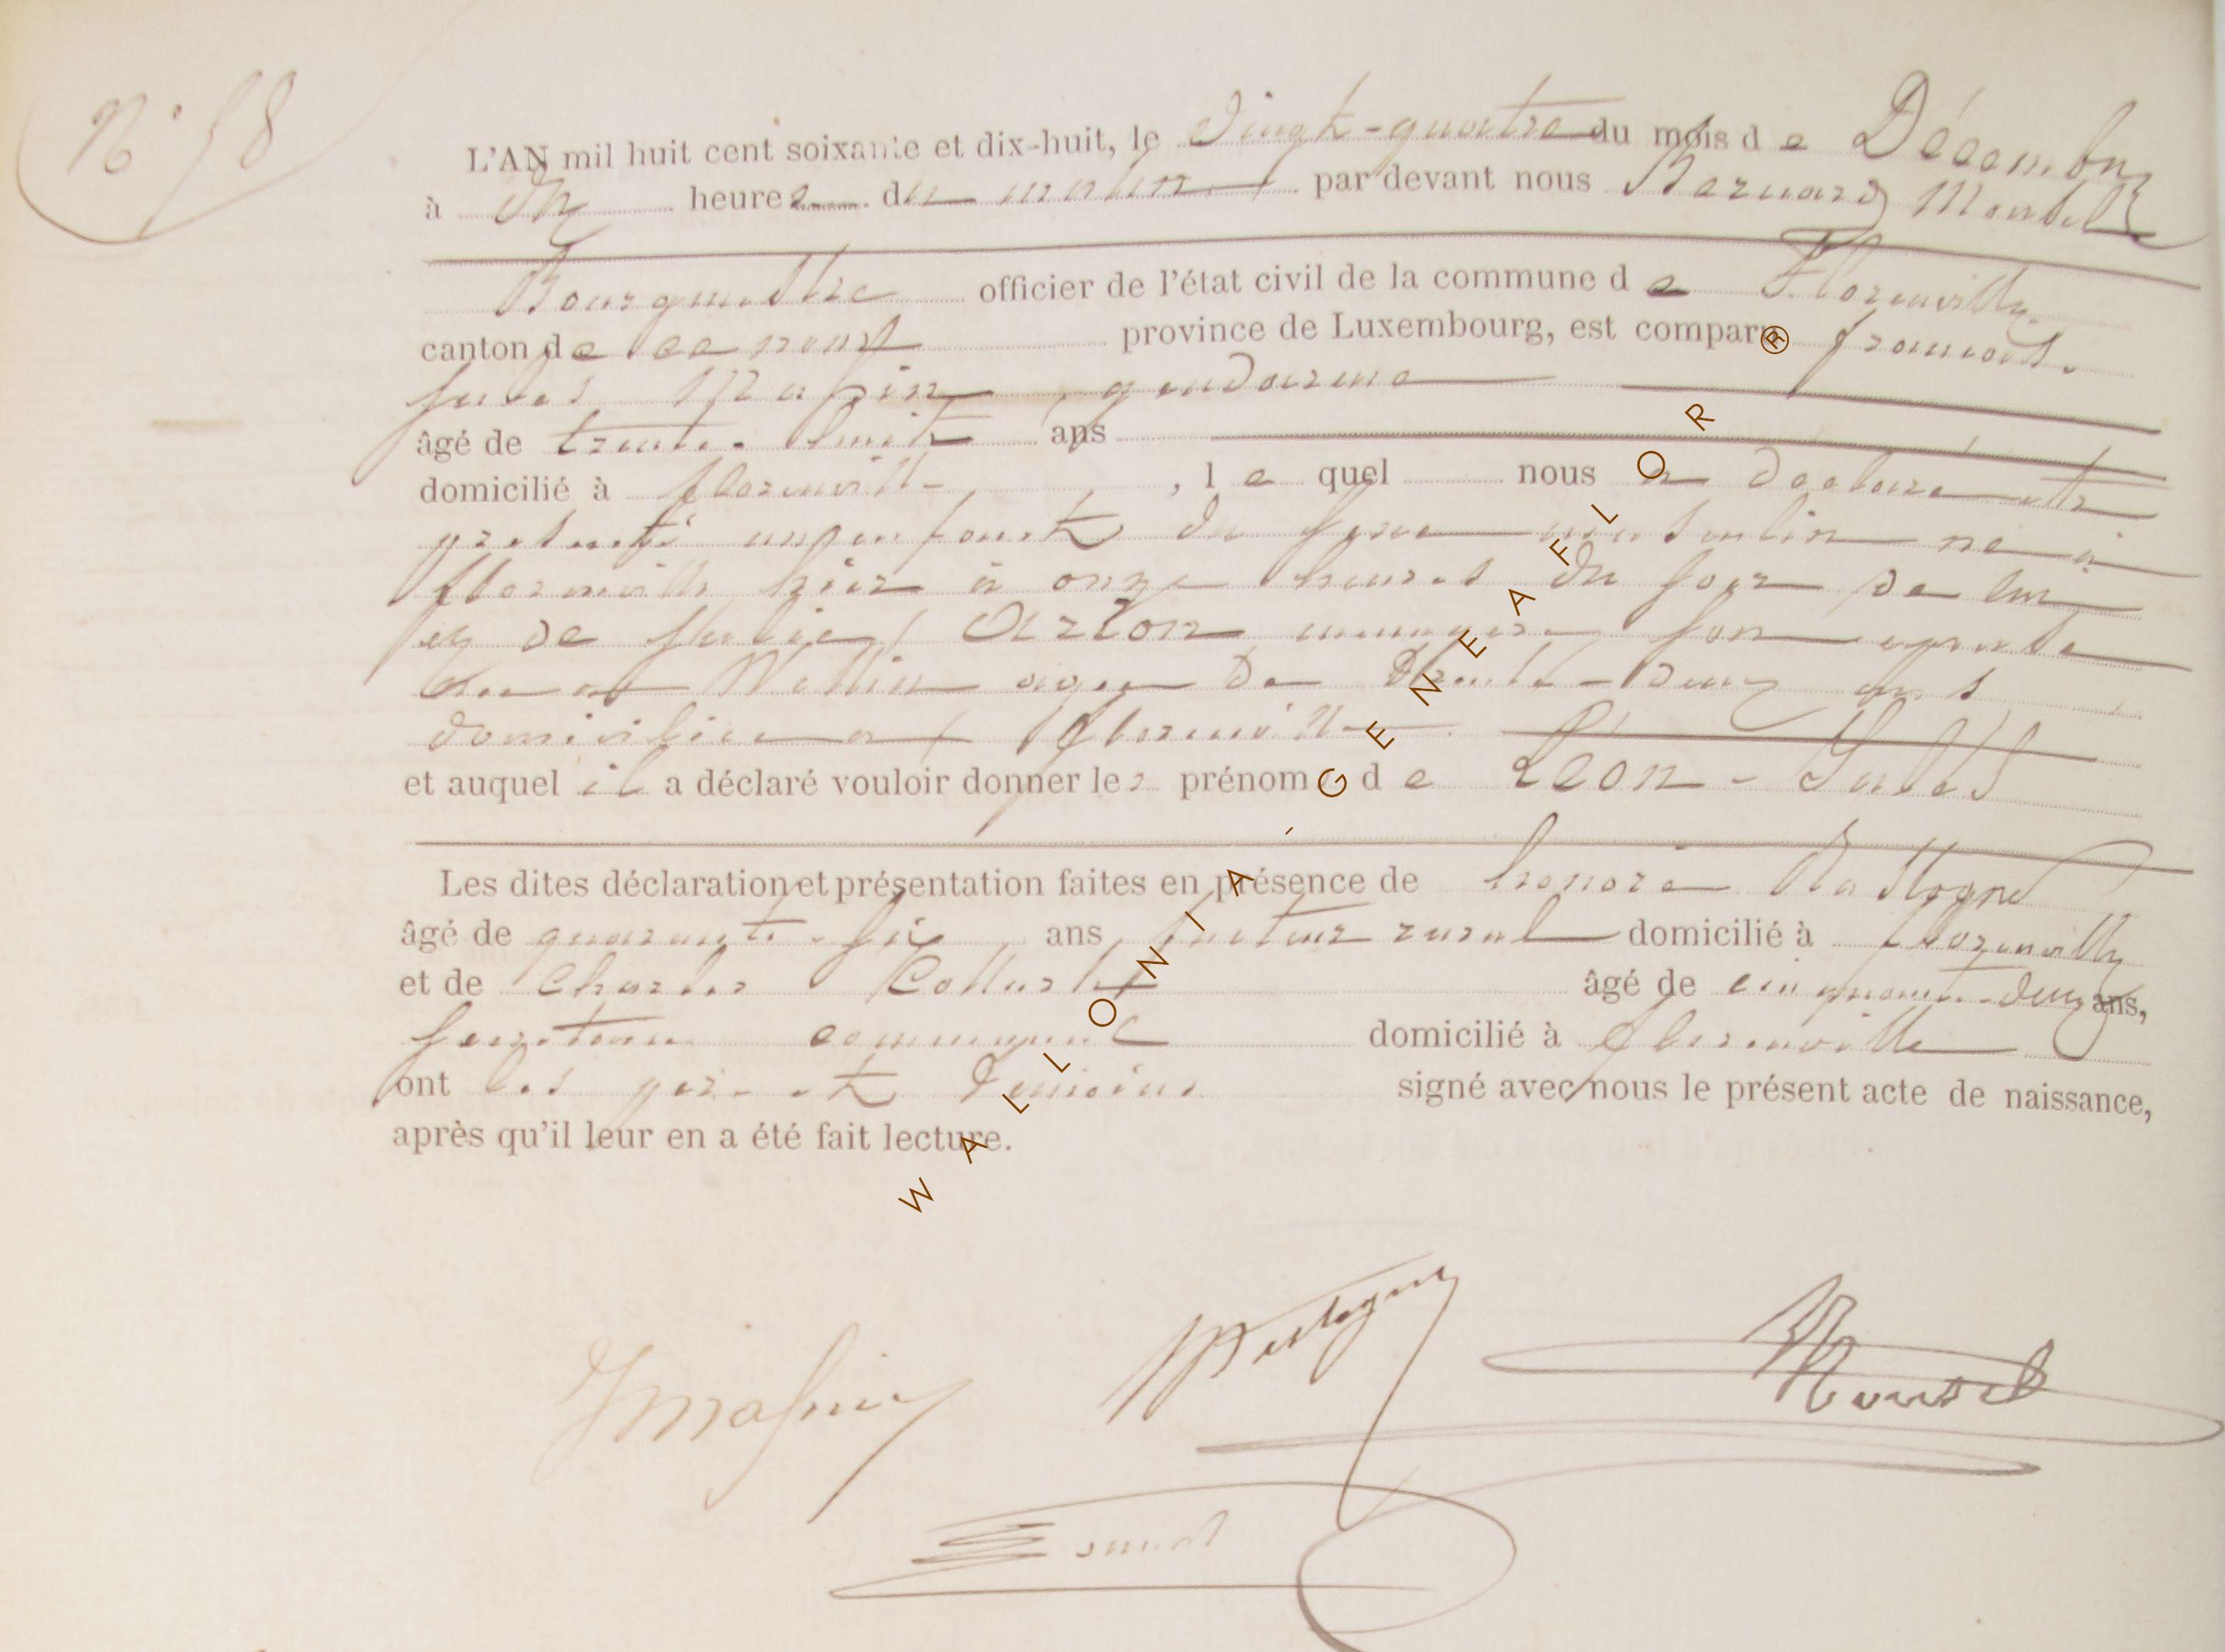 N° 58
L'AN mil huit cent soixante et dix-huit, le Vingt-quatre du mois de Décembre
à dix heures du matin par devant nous Bernard
Bourgmestre officier de l'état civil de la commune de Florenville
canton de ce nom province de Luxembourg, est comparu françois
jules Mafin, gendarme
âgé de trente-huit ans
domicilié à florenville, lequel nous a déclaré et
présenté un enfant du sexe masculin né à
florenville hier à onze heures du soir de lui
et de Arion ménagère son épouse
âgée de trente-deux ans
domiciliée à florenville
et auquel il a déclaré vouloir donner les prénoms de Léon-Jules
Les dites déclaration et présentation faites en présence de honoré
âgé de quarante-six ans facteur rural domicilié à florenville
et de Charles âgé de cinquante-deux ans,
domicilié à florenville
ont les père et témoins signé avec nous le présent acte de naissance,
après qu'il leur en a été fait lecture.
WALLONIA-GENEAFLOR®